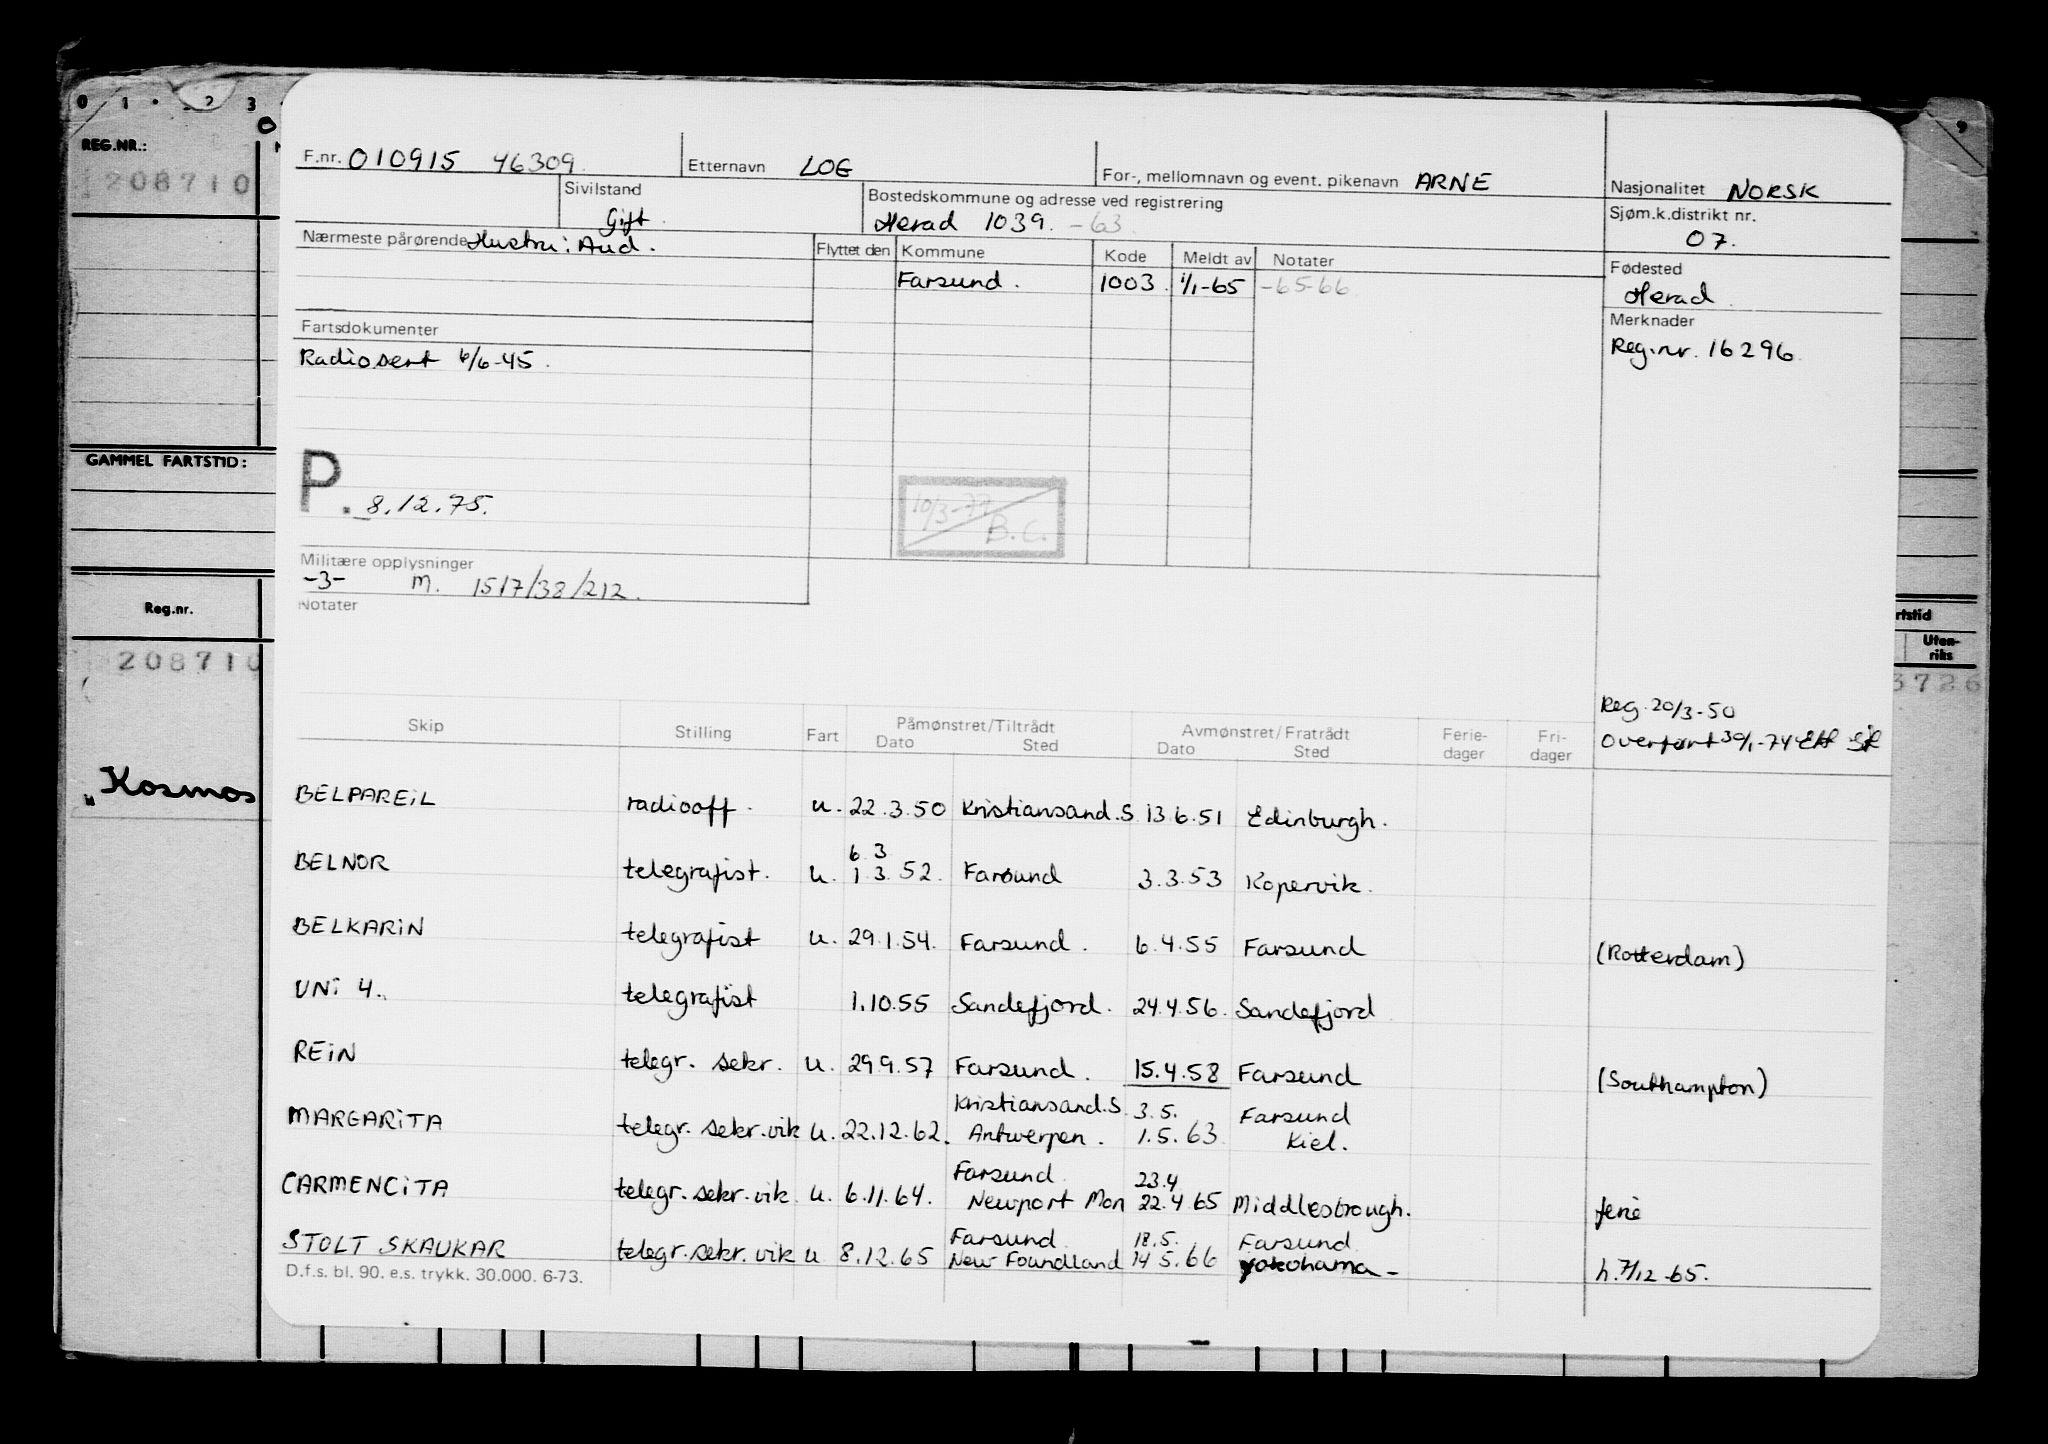 0 1 2 3
REG.NR.:
208710
F.nr. 010915 46309 Etternavn LOG For-, mellomnavn og event. pikenavn ARNE Nasjonalitet NORSK
Sivilstand Gift. Bostedskommune og adresse ved registrering Herad 1039. -63 Sjøm.k.distrikt nr. 07.
Nærmeste pårørende Hustru: Aud. Flyttet den Kommune Kode Meldt av Notater Fødested Herad
Farsund. 1003. 1/1-65 -65-66
Fartsdokumenter Merknader
Radiosert 6/6-45. Reg.nr. 16296.
GAMMEL FARTSTID:
P. 8.12.75.
10/3-77 B.C.
Militære opplysninger
-3- M. 1517/38/212.
Notater
Reg.nr.
208710
rtstid
Uten-
riks
3726
Reg. 20/3-50
Overført 30/1-74
Skip Stilling Fart Påmønstret/Tiltrådt Avmønstret/Fratrådt Ferie-dager Fri-dager
Dato Sted Dato Sted
"Kosmos
BELPAREIL radiooff. u. 22.3.50 Kristiansand.S 13.6.51 Edinburgh.
6 3
BELNOR telegrafist. u. 1.3.52. Farsund 3.3.53 Kopervik.
BELKARIN telegrafist u. 29.1.54. Farsund. 6.4.55 Farsund (Rotterdam)
UNI 4. telegrafist 1.10.55 Sandefjord. 24.4.56. Sandefjord
REIN telegr. sekr. u. 29.9.57 Farsund. 15.4.58 Farsund (Southampton)
Kristiansand.S 3.5. Farsund
MARGARITA telegr. sekr.vik u. 22.12.62. Antwerpen. 1.5.63 Kiel.
Farsund 23.4
CARMENCITA telegr.sekr.vik u. 6.11.64. Newport Mon 22.4 65 Middlesbrough. ferie
Farsund 18.5. Farsund
STOLT SKAUKAR telegr.sekr.vik u 8.12.65 New Foundland 14 5.66 Yokohama - h.7/12-65.
D.f.s. bl. 90. e.s. trykk. 30.000. 6-73.